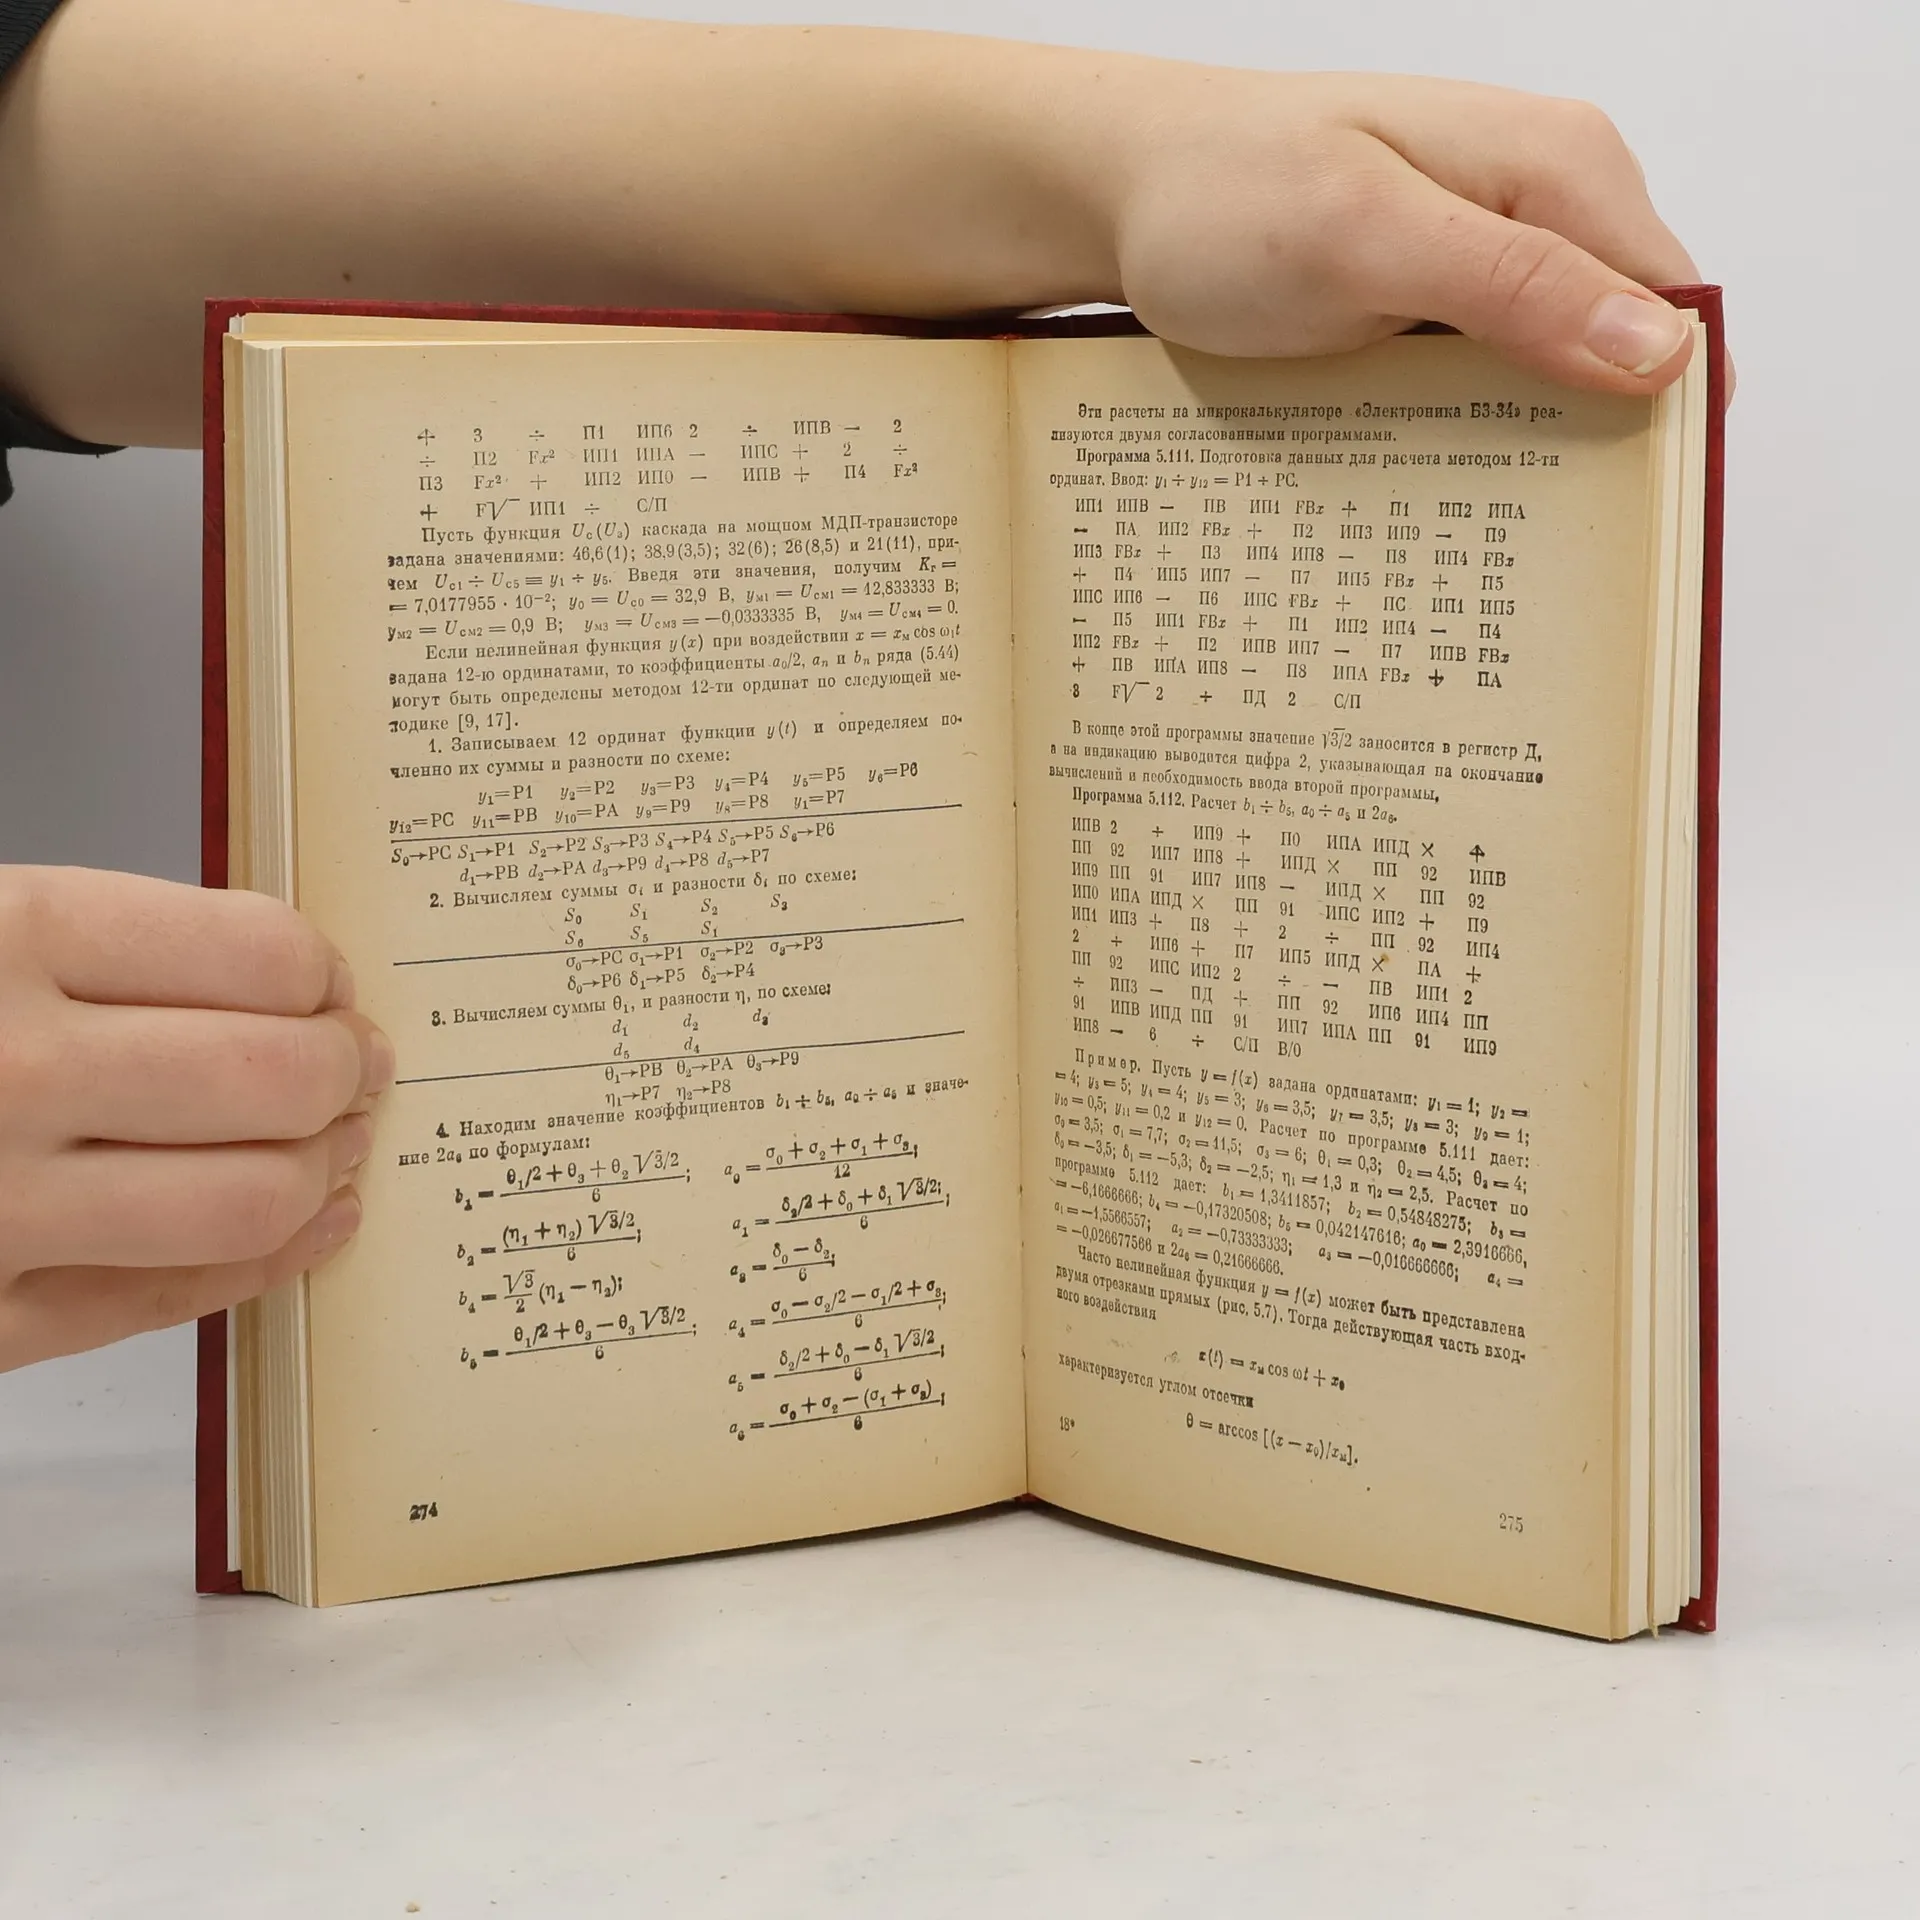 + 3 ÷ П1 ИП6 2 ÷ ИПВ — 2
÷ П2 Fx² ИП1 ИПА — ИПС + 2 ÷
П3 Fx² + ИП2 ИП0 — ИПВ + П4 Fx²
+ F√‾ ИП1 ÷ С/П
Пусть функция Uс(Uз) каскада на мощном МДП-транзисторе
задана значениями: 46,6(1); 38,9(3,5); 32(6); 26(8,5) и 21(11), при-
чем Uс1 ÷ Uс5 ≡ y₁ ÷ y₅. Введя эти значения, получим Kг =
= 7,0177955 · 10⁻²; y₀ = Uс0 = 32,9 В, yм1 = Uсм1 = 12,833333 В;
yм2 = Uсм2 = 0,9 В; yм3 = Uсм3 = —0,0333335 В, yм4 = Uсм4 = 0.
Если нелинейная функция y(x) при воздействии x = xм cos ω₁t
задана 12-ю ординатами, то коэффициенты a₀/2, aₙ и bₙ ряда (5.44)
могут быть определены методом 12-ти ординат по следующей ме-
тодике [9, 17].
1. Записываем 12 ординат функции y(t) и определяем по-
членно их суммы и разности по схеме:
y₁=P1 y₂=P2 y₃=P3 y₄=P4 y₅=P5 y₆=P6
y₁₂=PC y₁₁=PB y₁₀=PA y₉=P9 y₈=P8 y₁=P7
S₀→PC S₁→P1 S₂→P2 S₃→P3 S₄→P4 S₅→P5 S₆→P6
d₁→PB d₂→PA d₃→P9 d₄→P8 d₅→P7
2. Вычисляем суммы σᵢ и разности δᵢ по схеме:
S₀ S₁ S₂ S₃
S₆ S₅ S₁
σ₀→PC σ₁→P1 σ₂→P2 σ₃→P3
δ₀→P6 δ₁→P5 δ₂→P4
3. Вычисляем суммы θ₁, и разности η, по схеме:
d₁ d₂ d₃
d₅ d₄
θ₁→PB θ₂→PA θ₃→P9
η₁→P7 η₂→P8
4. Находим значение коэффициентов b₁ ÷ b₅, a₀ ÷ a₅ и значе-
ние 2a₆ по формулам:
b₁ = (θ₁/2 + θ₃ + θ₂ √3/2)/6; a₀ = (σ₀ + σ₂ + σ₁ + σ₃)/12;
b₂ = ((η₁ + η₂) √3/2)/6; a₁ = (δ₂/2 + δ₀ + δ₁ √3/2)/6;
b₄ = √3/2 (η₁ — η₂); a₃ = (δ₀ — δ₂)/6;
b₅ = (θ₁/2 + θ₃ — θ₃ √3/2)/6; a₄ = (σ₀ — σ₂/2 — σ₁/2 + σ₃)/6;
a₅ = (δ₂/2 + δ₀ — δ₁ √3/2)/6;
a₆ = (σ₀ + σ₂ — (σ₁ + σ₃))/6;
274
Эти расчеты на микрокалькуляторе «Электроника Б3-34» реа-
лизуются двумя согласованными программами.
Программа 5.111. Подготовка данных для расчета методом 12-ти
ординат. Ввод: y₁ ÷ y₁₂ = P1 ÷ PC.
ИП1 ИПВ — ПВ ИП1 FBx + П1 ИП2 ИПА
— ПА ИП2 FBx + П2 ИП3 ИП9 — П9
ИП3 FBx + П3 ИП4 ИП8 — П8 ИП4 FBx
+ П4 ИП5 ИП7 — П7 ИП5 FBx + П5
ИПС ИП6 — П6 ИПС FBx + ПС ИП1 ИП5
— П5 ИП1 FBx + П1 ИП2 ИП4 — П4
ИП2 FBx + П2 ИПВ ИП7 — П7 ИПВ FBx
+ ПВ ИПА ИП8 — П8 ИПА FBx + ПА
3 F√‾ 2 ÷ ПД 2 С/П
В конце этой программы значение √3/2 заносится в регистр Д,
а на индикацию выводится цифра 2, указывающая на окончание
вычислений и необходимость ввода второй программы.
Программа 5.112. Расчет b₁ ÷ b₅, a₀ ÷ a₅ и 2a₆.
ИПВ 2 ÷ ИП9 + П0 ИПА ИПД × ↑
ПП 92 ИП7 ИП8 + ИПД × ПП 92 ИПВ
ИП9 ПП 91 ИП7 ИП8 — ИПД × ПП 92
ИП0 ИПА ИПД × ПП 91 ИПС ИП2 + П9
ИП1 ИП3 + П8 + 2 ÷ ПП 92 ИП4
2 ÷ ИП6 + П7 ИП5 ИПД × ПА +
ПП 92 ИПС ИП2 2 ÷ — ПВ ИП1 2
÷ ИП3 — ПД + ПП 92 ИП6 ИП4 ПП
91 ИПВ ИПД ПП 91 ИП7 ИПА ПП 91 ИП9
ИП8 — 6 ÷ С/П В/О
Пример. Пусть y = f(x) задана ординатами: y₁ = 1; y₂ =
= 4; y₃ = 5; y₄ = 4; y₅ = 3; y₆ = 3,5; y₇ = 3,5; y₈ = 3; y₉ = 1;
y₁₀ = 0,5; y₁₁ = 0,2 и y₁₂ = 0. Расчет по программе 5.111 дает:
σ₀ = 3,5; σ₁ = 7,7; σ₂ = 11,5; σ₃ = 6; θ₁ = 0,3; θ₂ = 4,5; θ₃ = 4;
δ₀ = —3,5; δ₁ = —5,3; δ₂ = —2,5; η₁ = 1,3 и η₂ = 2,5. Расчет по
программе 5.112 дает: b₁ = 1,3411857; b₂ = 0,54848275; b₃ =
= —6,1666666; b₄ = —0,17320508; b₅ = 0,042147616; a₀ = 2,3916666,
a₁ = —1,5566557; a₂ = —0,73333333; a₃ = —0,016666666; a₄ =
= —0,026677566 и 2a₆ = 0,21666666.
Часто нелинейная функция y = f(x) может быть представлена
двумя отрезками прямых (рис. 5.7). Тогда действующая часть вход-
ного воздействия
x(t) = xм cos ωt + x₀
характеризуется углом отсечки
θ = arccos [(x — x₀)/xм].
18*
275